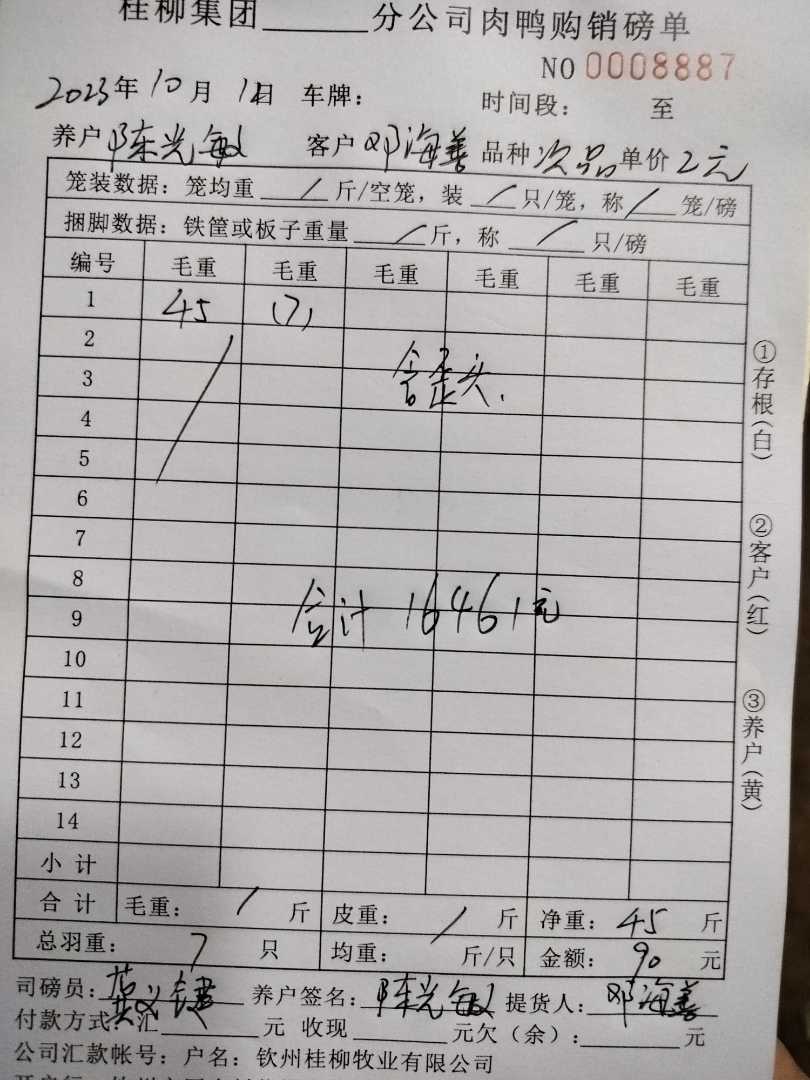 桂柳集团______分公司肉鸭购销磅单
NO 0008887
2023年10月1日 车牌： 时间段： 至
养户 陈光敏 客户 邓海善 品种 次品 单价 2元
笼装数据：笼均重 / 斤/空笼，装 / 只/笼，称 / 笼/磅
捆脚数据：铁筐或板子重量 / 斤，称 / 只/磅
编号 毛重 毛重 毛重 毛重 毛重 毛重
1 45 (7)
2
3 含歪头.
4
5
6
7
8
9 合计 16461元
10
11
12
13
14
小 计
合 计 毛重： / 斤 皮重： / 斤 净重： 45 斤
总羽重： 7 只 均重： 斤/只 金额： 90 元
司磅员： 养户签名： 陈光敏 提货人： 邓海善
付款方式：汇______元 收现______元欠（余）：______元
公司汇款帐号：户名：钦州桂柳牧业有限公司
①存根(白)
②客户(红)
③养户(黄)